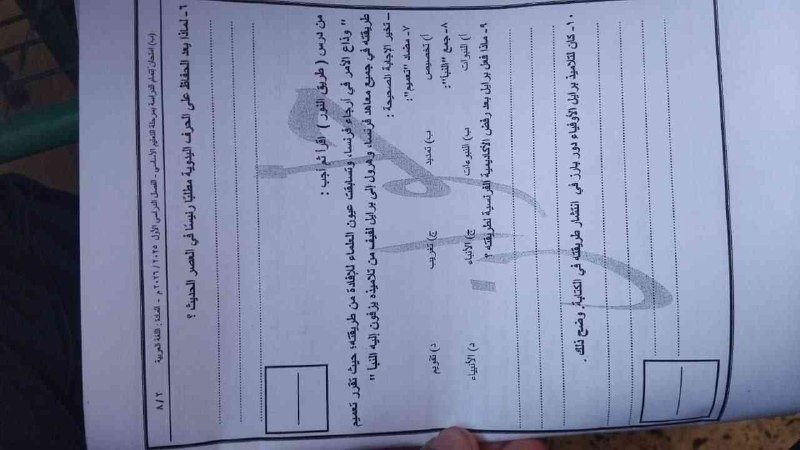 (ب) امتحان إتمام الدراسة بمرحلة التعليم الأساسي - الفصل الدراسي الأول ٢٠٢٥ / ٢٠٢٦ م - المادة : اللغة العربية ٨ / ٢
٦ - لماذا يعد الحفاظ على الحرف اليدوية مطلبًا رئيسًا في العصر الحديث ؟
من درس ( طريق النور ) اقرأ ثم أجب :
" وذاع الأمر في أرجاء فرنسا، وتسابقت عيون العلماء للإفادة من طريقته؛ حيث تقرر تعميم
طريقته في جميع معاهد فرنسا، وهرول إلى برايل لفيف من تلاميذه يزفون إليه النبأ "
– تخير الإجابة الصحيحة :
٧- مضاد "تعميم":
أ) تخصيص ب) تمديد ج) تغريب د) تقويم
٨- جمع "النبأ":
أ) النبرات ب) النبوءات ج) الأنباء د) الأنبياء
٩- ماذا فعل برايل بعد رفض الأكاديمية الفرنسية لطريقته ؟
١٠- كان لتلاميذ برايل الأوفياء دور بارز في انتشار طريقته في الكتابة. وضح ذلك .